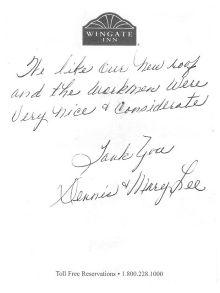 WINGATE
INN
We like our new roof
and the workmen were
Very nice & Considerate
Tank You
Dennis & Mary Lee
Toll Free Reservations • 1.800.228.1000